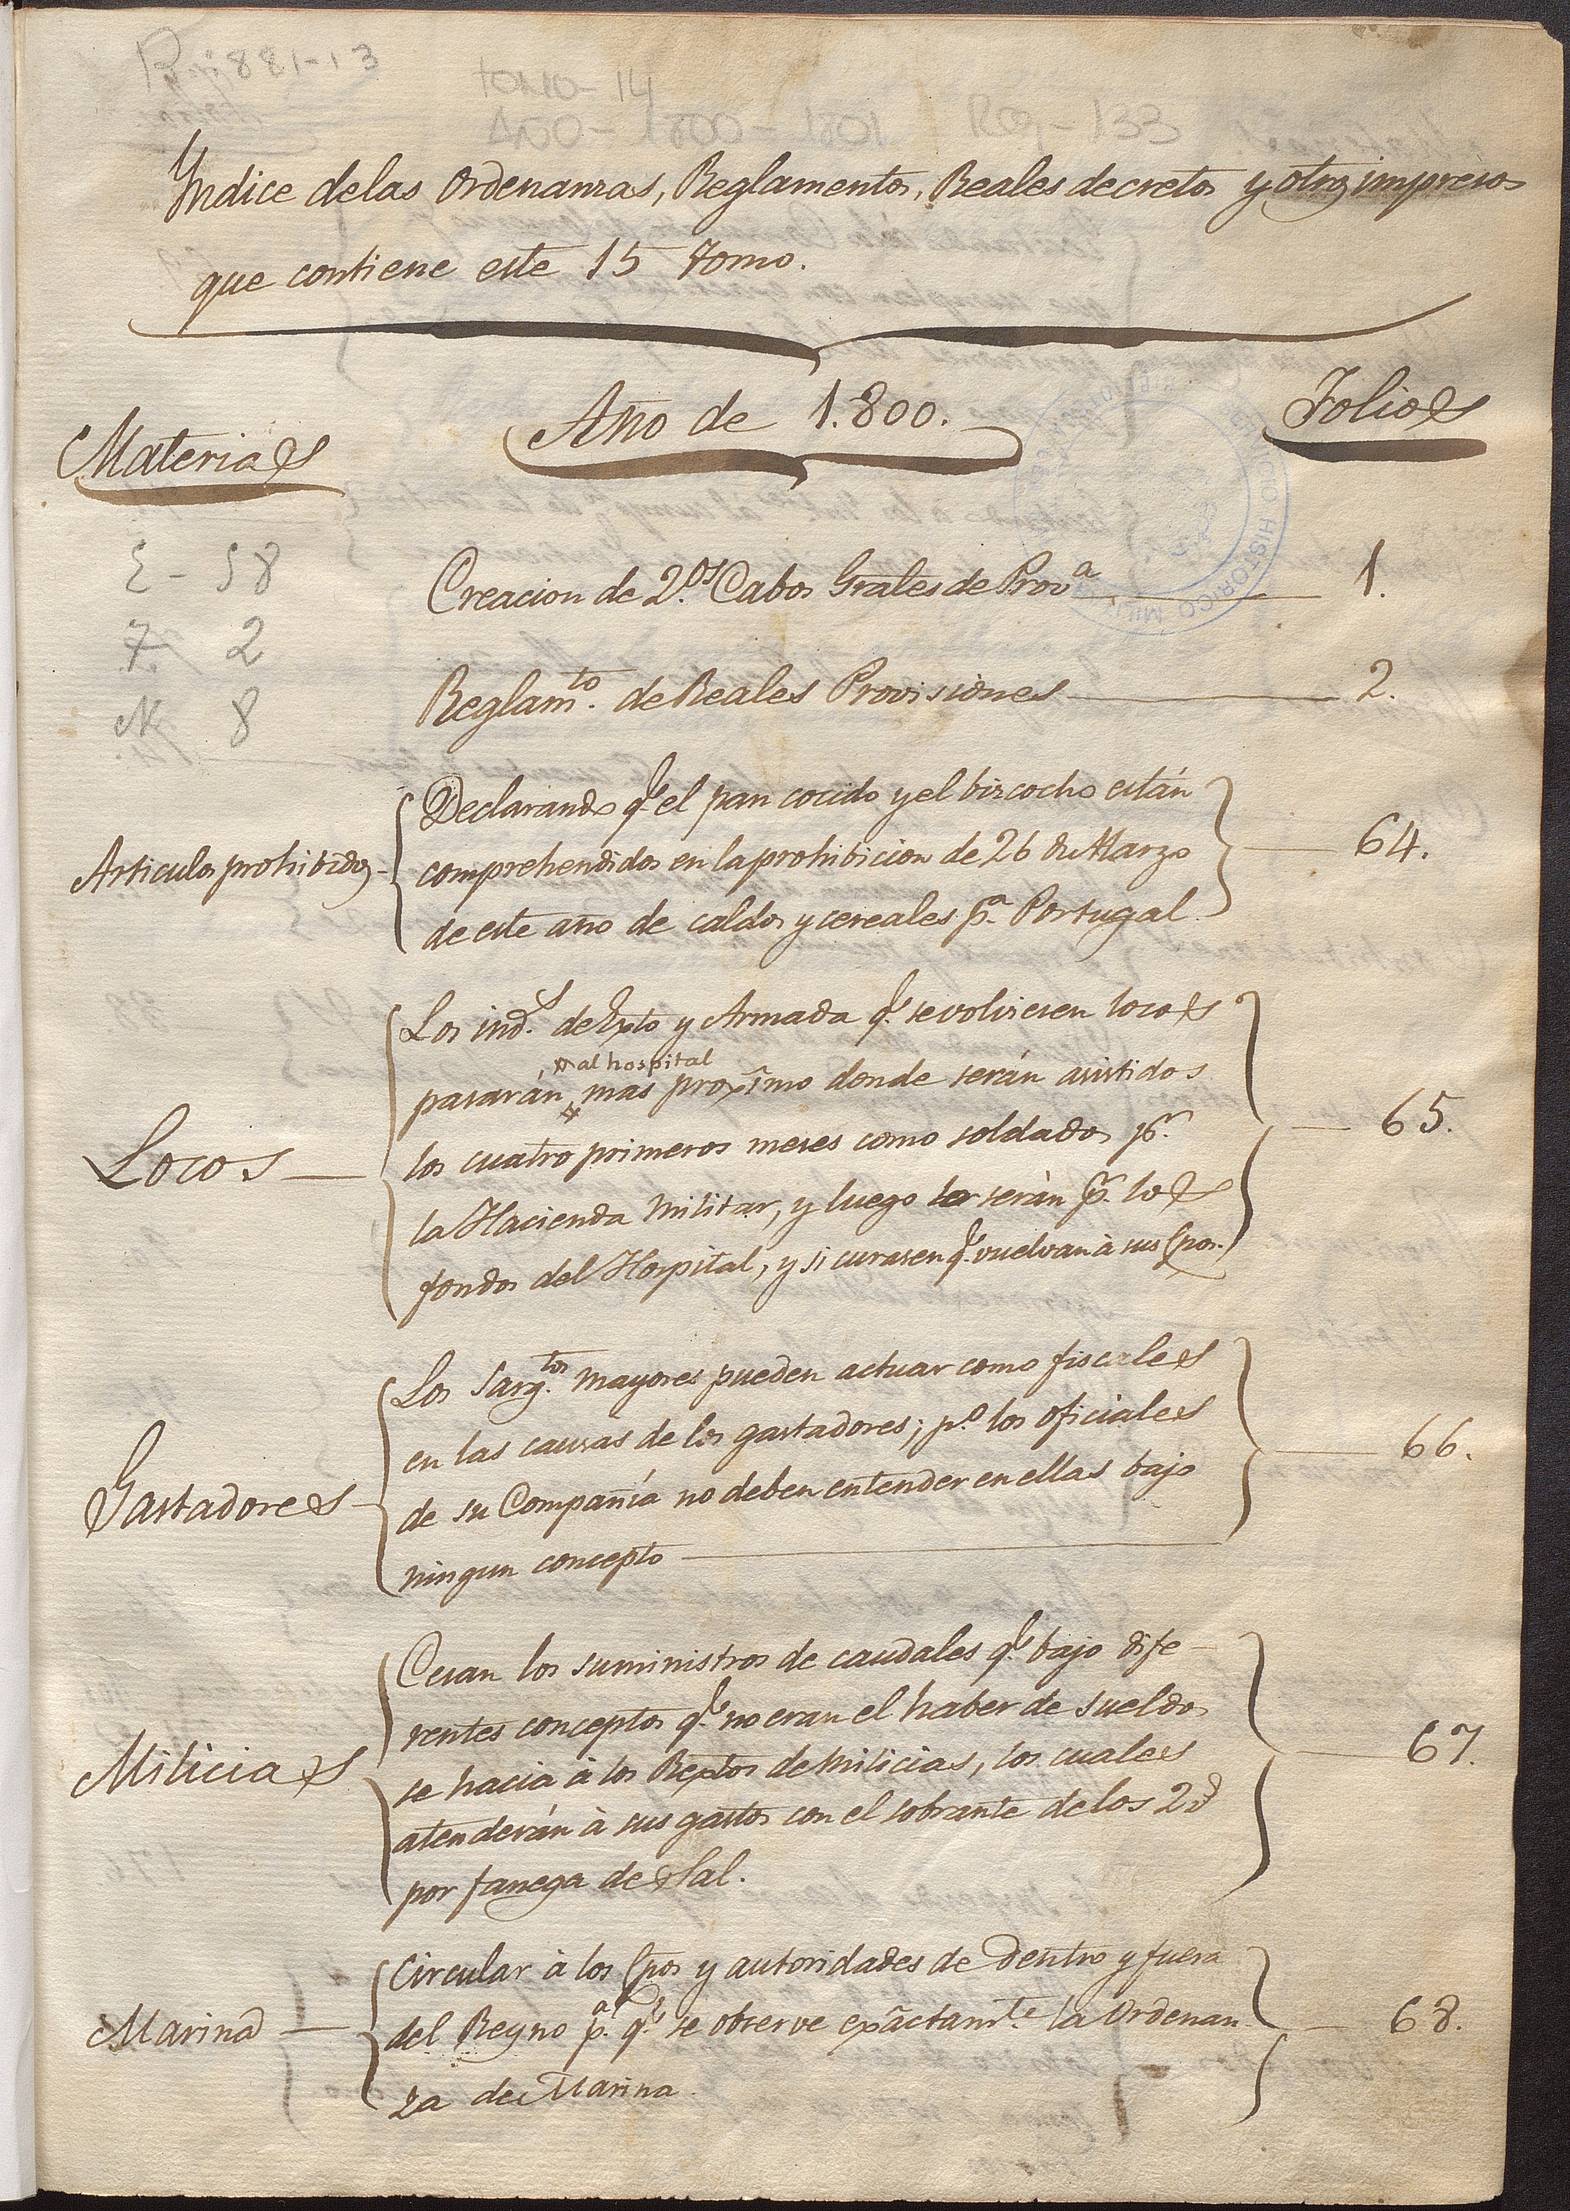 R.j. 881-13
tomo - 14
Año - 1800 - 1801 Reg - 133
Yndice delas Ordenanzas, Reglamentos, Reales decretos y otros impresos
que contiene este 15 tomo.
Materias
Año de 1.800.
Folios
E - 58
7 2
8
Creacion de 2.os Cabos Grales de Prov.a 1.
Reglam.to de Reales Provisiones 2.
Articulos prohibidos
Declarando q.e el pan cocido y el bizcocho están
comprehendidos en la prohibicion de 26 de Marzo
de este año de caldos y cereales p.a Portugal.
64.
Locos
Los ind.s de Exto y Armada q.e se volviesen locos
pasarán al hospital mas proximo donde serán asistidos
los cuatro primeros meses como soldados p.r
la Hacienda militar, y luego lo serán p.r los
fondos del Hospital, y si curasen q.e vuelvan à sus Cpos.
65.
Gastadores
Los Sarg.tos mayores pueden actuar como fiscales
en las causas de los gastadores; p.o los oficiales
de su Compañía no deben entender en ellas bajo
ningun concepto
66.
Milicias
Cesan los suministros de caudales q.e bajo dife-
rentes conceptos q.e no eran el haber de sueldos
se hacia à los Regtos de milicias, los cuales
atenderán à sus gastos con el sobrante de los 2
por fanega de Sal.
67.
Marina
Circular à los Cpos y autoridades de dentro y fuera
del Reyno p.a q.e se observe exactam.te la Ordenan-
za de Marina.
68.